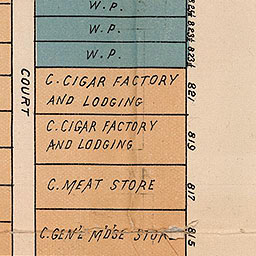 W.P.
W.P.
W.P.
COURT
C. CIGAR FACTORY
AND LODGING
821
C. CIGAR FACTORY
AND LODGING
819
C. MEAT STORE
817
C. GEN'L M'D'SE STORE
815